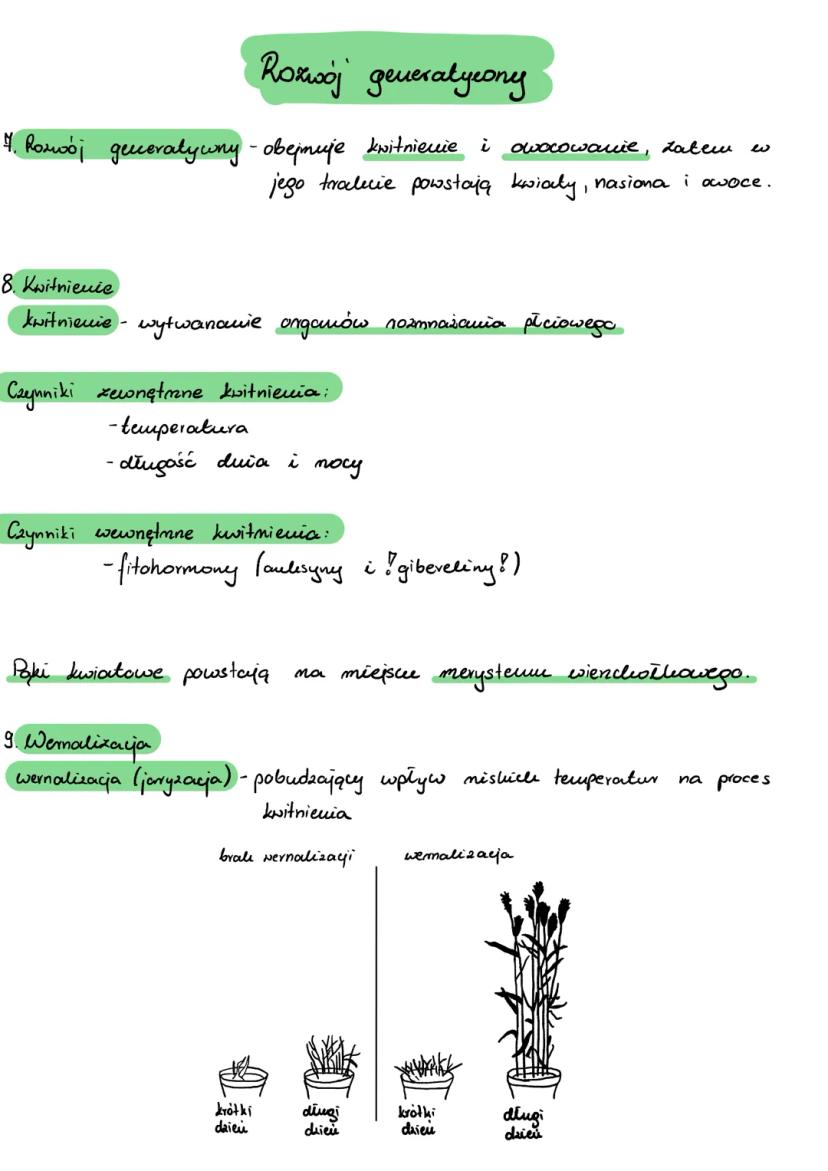 Rozwój generatywny
7. Rozwój generatywny - obejmuje kwitnienie i owocowanie, zatem w
jego trakcie powstają kwiaty, nasiona i owoce.
8. Kwitnienie
kwitnienie - wytwarzanie organów rozmnażania płciowego
Czynniki zewnętrzne kwitnienia:
-temperatura
-długość dnia i nocy
Czynniki wewnętrzne kwitnienia:
-fitohormony (auksyny i !gibereliny!)
Pąki kwiatowe powstają na miejscu merystemu wierzchołkowego.
9. Wernalizacja
wernalizacja (jaryzacja) - pobudzający wpływ niskich temperatur na proces
kwitnienia
brak wernalizacji wernalizacja
krótki długi krótki długi
dzień dzień dzień dzień